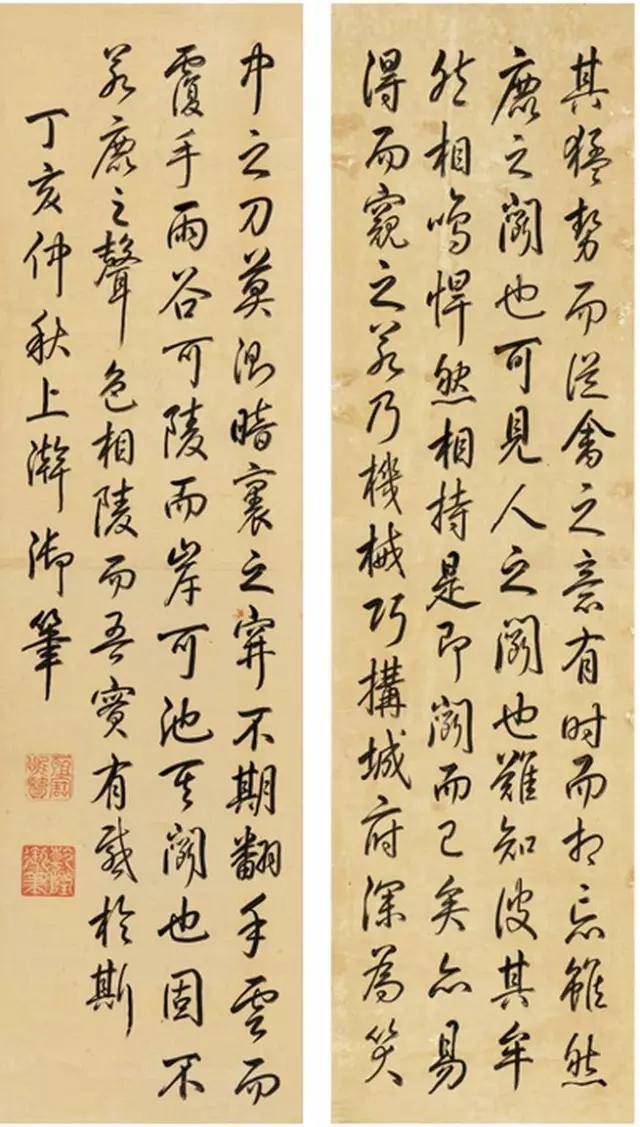 其猛勢而從禽之意有时而相忘雖然
鹿之鬭也可見人之鬭也難知彼其牟
然相鳴悍然相持是即鬭而已矣亦易
得而窺之若乃機械巧搆城府深為笑
中之刀莫測暗裏之穽不期翻手雲而
覆手雨谷可陵而岸可池其鬭也固不
若鹿之聲色相陵而吾實有感於斯
丁亥仲秋上澣御筆
乾隆御筆